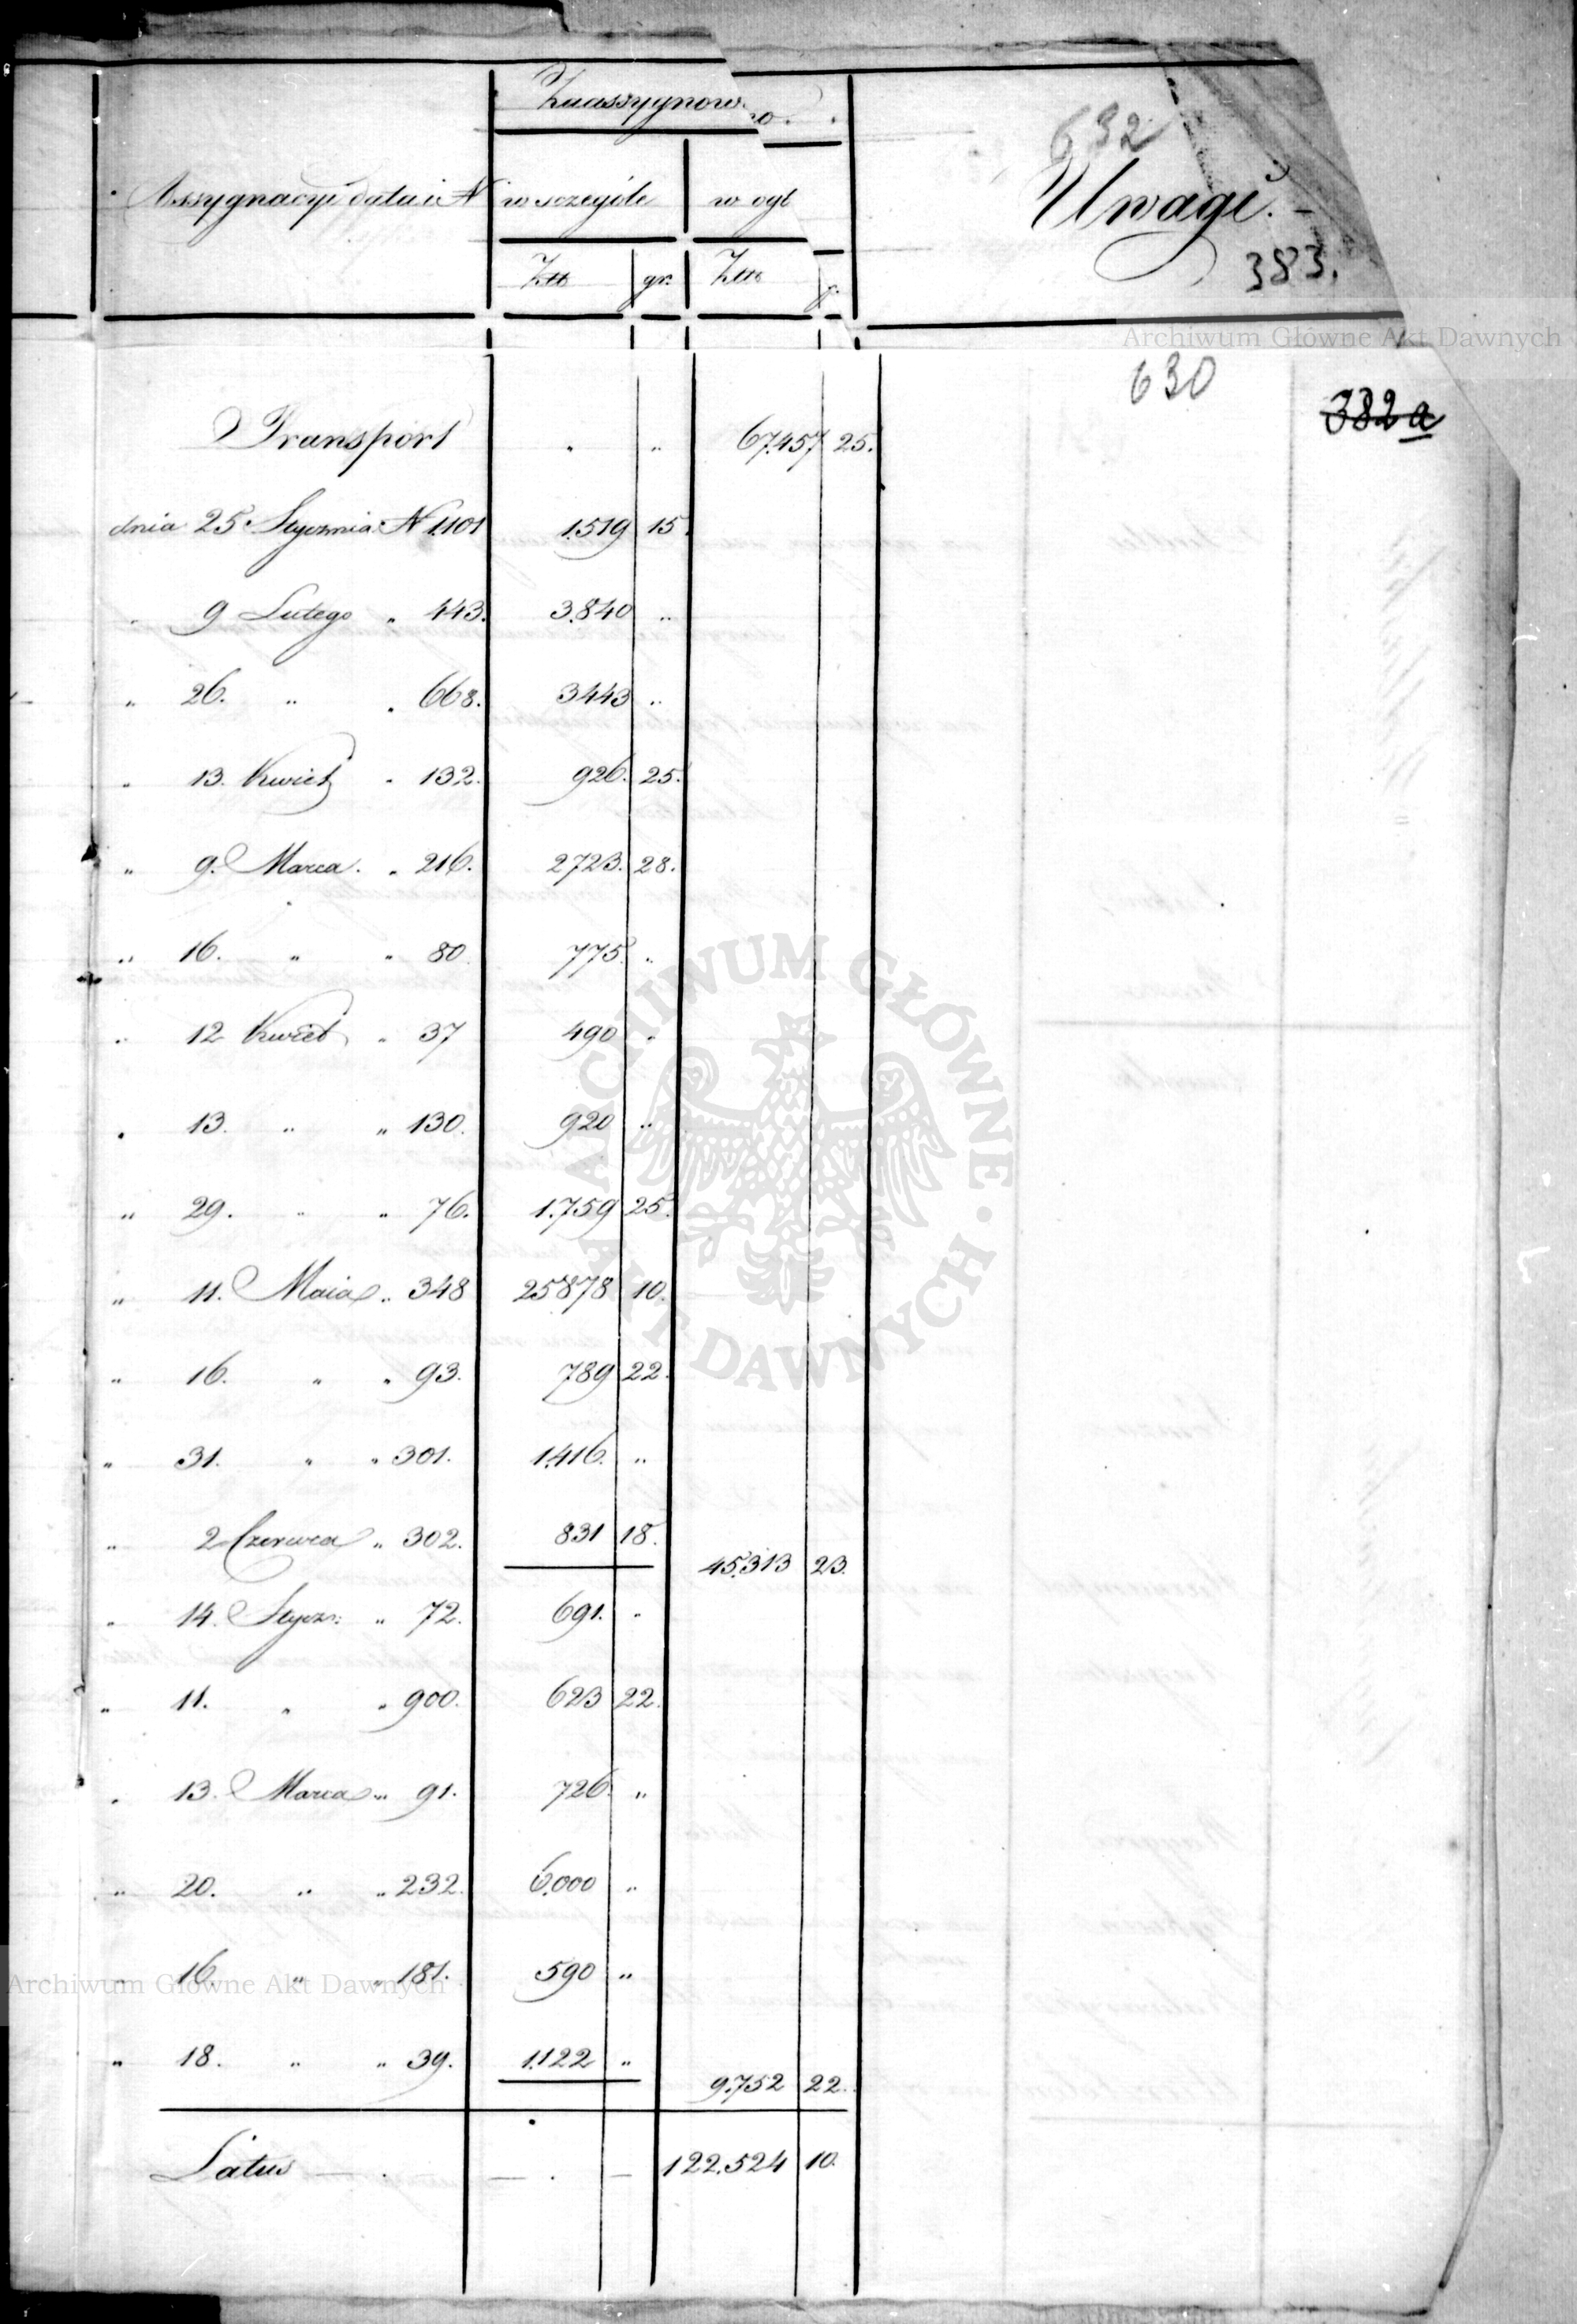 Zaassygnow no.
632
Assygnacyi data i N w szczególe w ogł Uwagi.
383.
Złt gr. Złt g.
Archiwum Główne Akt Dawnych
630
382 a
Transport " " 67.457 25.
dnia 25 Stycznia N 1.101 1.519 15.
" 9 Lutego " 443. 3.840 "
" 26. " " 668. 3443 "
" 13. Kwiet " 132. 926. 25.
" 9. Marca. " 216. 2723. 28.
" 16. " " 80. 775. "
" 12 Kwiet " 37 490 "
" 13. " " 130. 920 "
" 29. " " 76. 1.759 25.
" 11. Maia " 348 25878 10.
" 16. " " 93. 789 22.
" 31. " " 301. 1.416. "
" 2 Czerwca " 302. 831 18.
45.313 23.
" 14. Stycz: " 72. 691. "
" 11. " " 900. 623 22.
" 13. Marca " 91. 726. "
" 20. " " 232. 6.000 "
" 16. " " 181. 590 "
Archiwum Główne Akt Dawnych
" 18. " " 39. 1.122 "
9.752 22.
Latus — . — . — 122.524 10.
ARCHIWUM GŁÓWNE AKT DAWNYCH